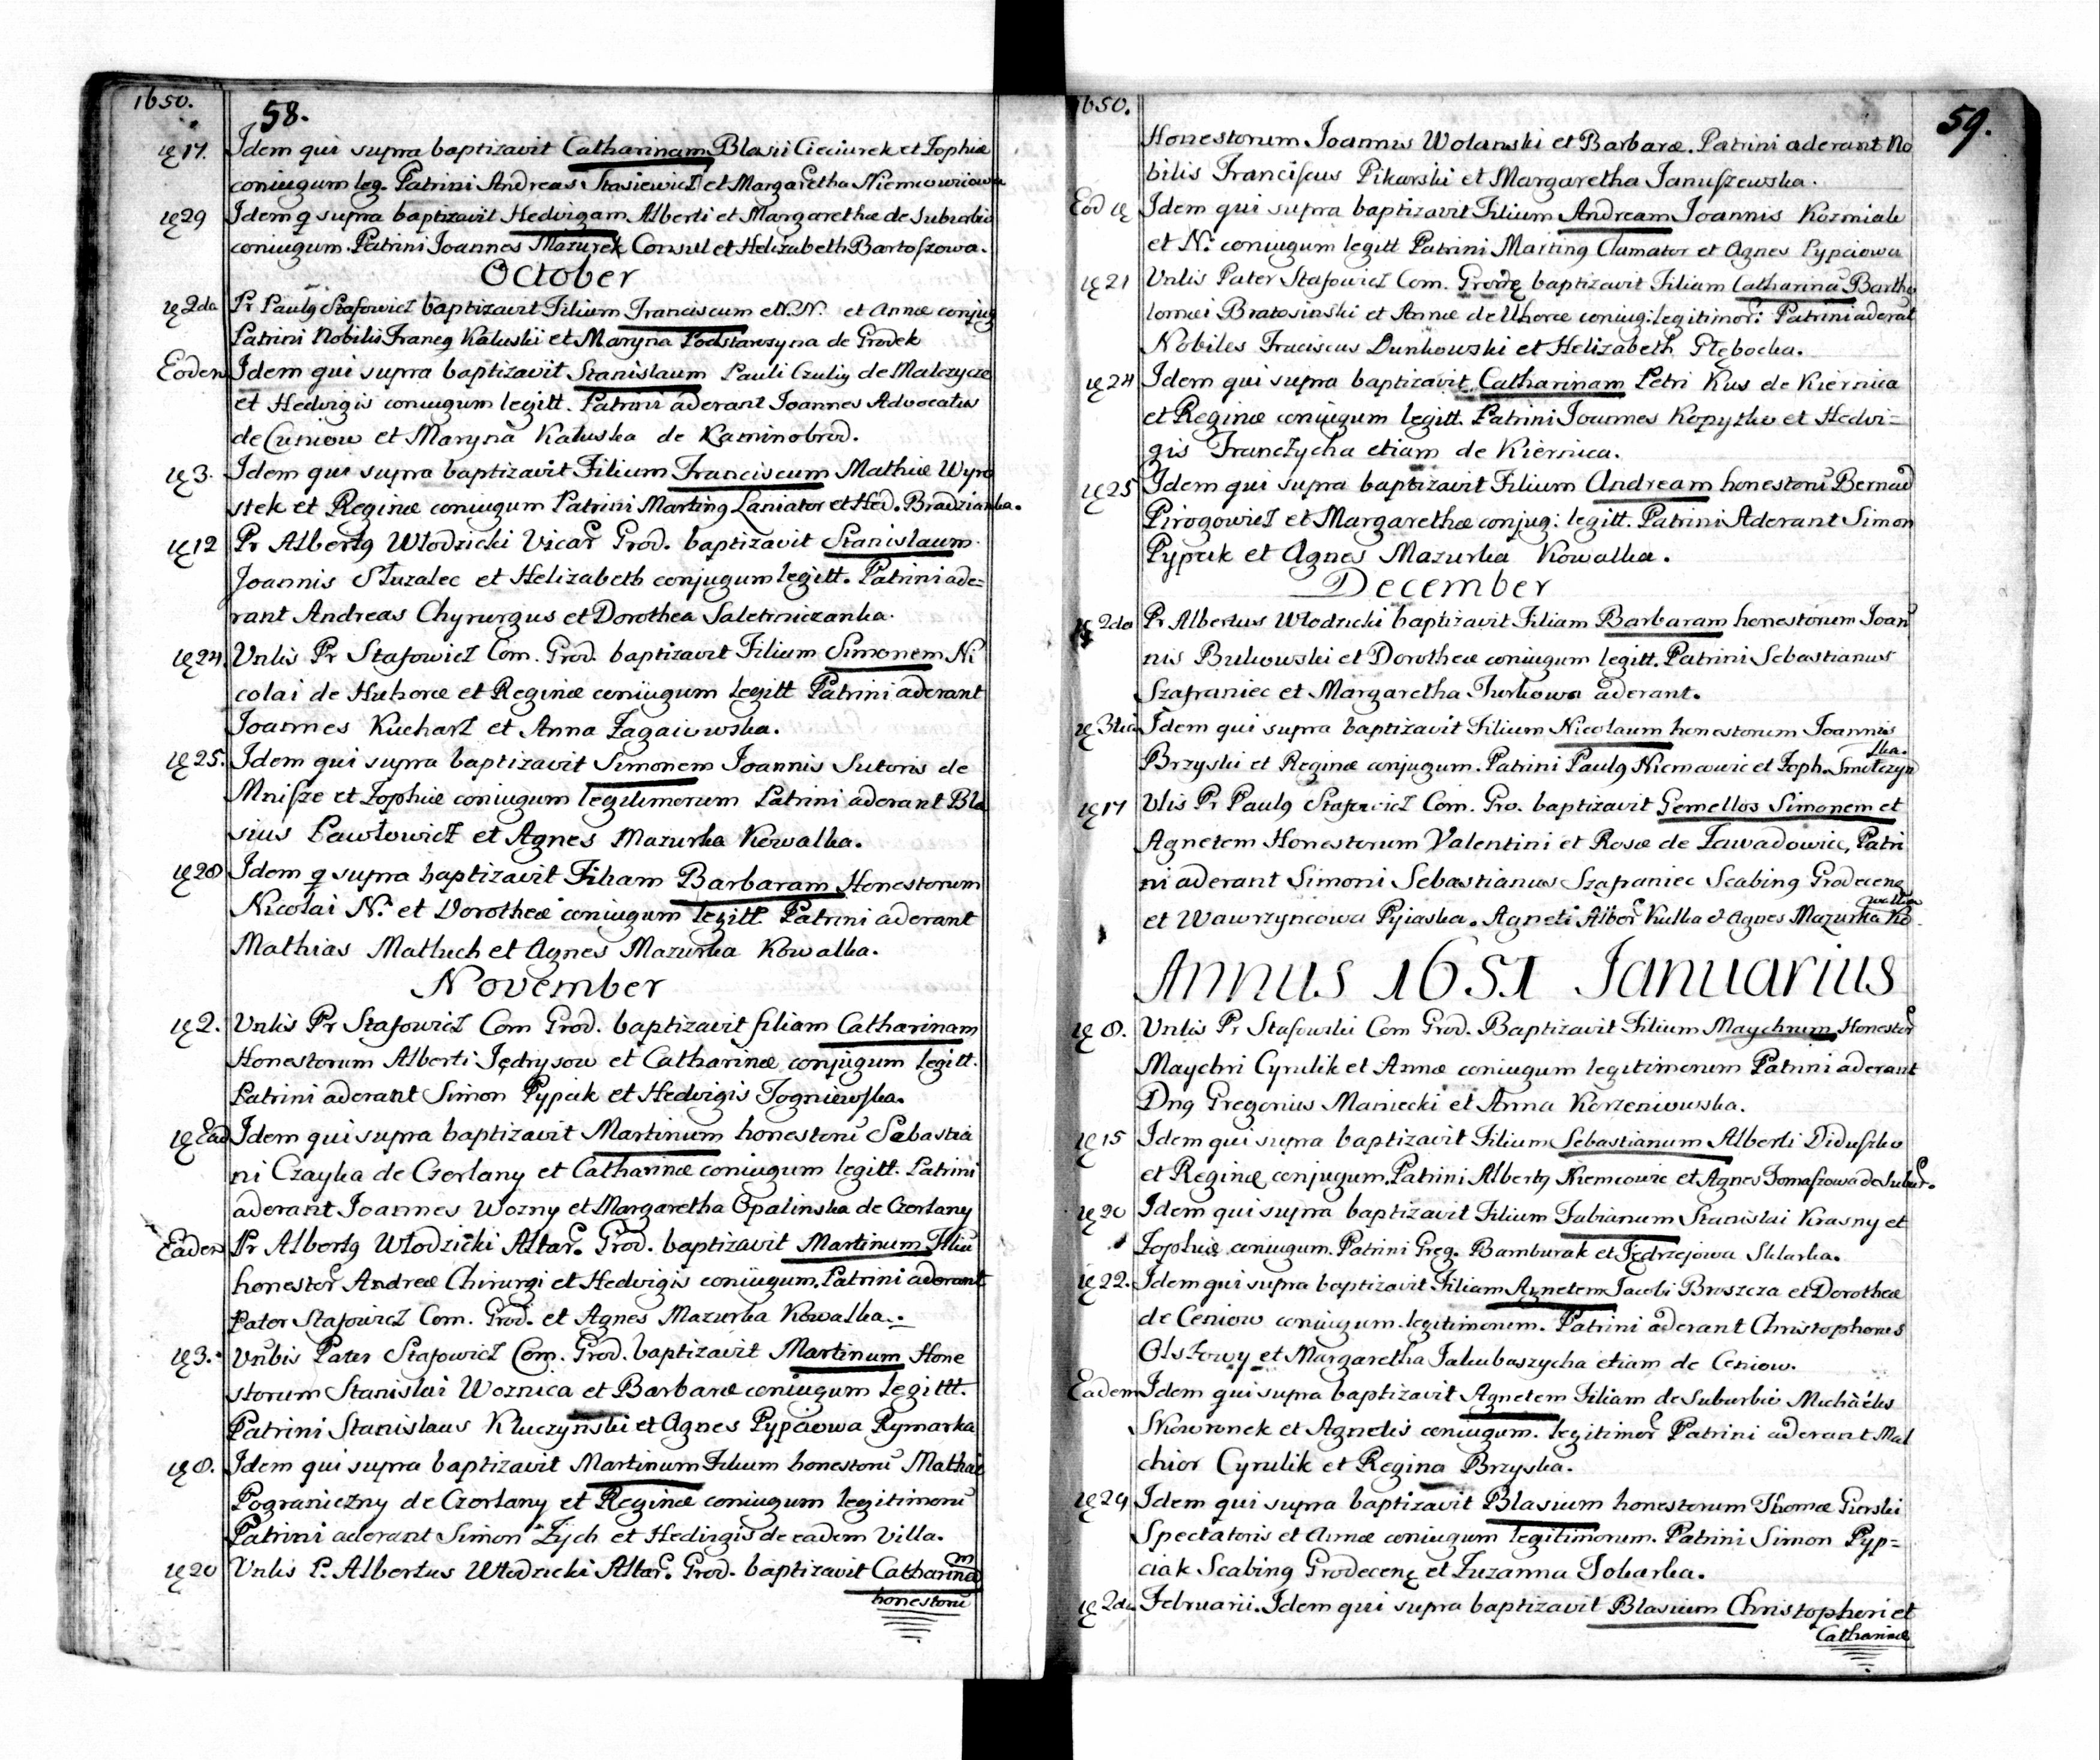 1650.
58.
17. Idem qui supra baptizavit Catharinam Blasii Cieciurek et Zophiæ
coniugum leg. Patrini Andreas Stasiewicz et Margaretha Niemcowiczowa
29 Idem q supra baptizavit Hedvigam Alberti et Margarethæ de Suburbio
coniugum. Patrini Joannes Mazurek Consul et Helizabeth Bartoszowa.
October
2da Pr Paulg Stafowicz baptizavit Filium Franciscum N.N. et Annæ conjug
Patrini Nobilis Francg Kaluski et Maryna Podstarszyna de Grodek
Eodem Idem qui supra baptizavit Stanislaum Pauli Czuliy de Malczyce
et Hedvigis coniugum legitt. Patrini aderant Joannes Advocatus
de Cuniow et Maryna Kaluska de Kaminobrod.
3. Idem qui supra baptizavit Filium Franciscum Mathiæ Wyro
stek et Reginæ coniugum Patrini Marting Laniator et Hed. Bradzianka.
12 Pr Albertg Włodzicki Vicar Grod. baptizavit Stanislaum
Joannis Słuzalec et Helizabeth conjugum legitt. Patrini ade=
rant Andreas Chyrurgus et Dorothea Saletniczanka.
24. Vnlis Pr Stafowicz Com. Grod. baptizavit Filium Simonem Ni
colai de Huhorce et Reginæ coniugum legitt Patrini aderant
Joannes Kucharz et Anna Zagaiewska.
25. Idem qui supra baptizavit Simonem Joannis Sutoris de
Mnisze et Zophiæ coniugum legitimorum Patrini aderant Bla
sius Pawłowicz et Agnes Mazurka Kowalka.
28 Idem q supra baptizavit Filiam Barbaram Honestorum
Nicolai N. et Dorotheæ coniugum legitt. Patrini aderant
Mathias Matluch et Agnes Mazurka Kowalka.
November
2. Vnlis Pr Stafowicz Com Grod. baptizavit filiam Catharinam
Honestorum Alberti Jędrysow et Catharinæ conjugum legitt.
Patrini aderant Simon Pypcik et Hedvigis Togniewska.
Ead Idem qui supra baptizavit Martinum honestorū Sebastia
ni Czayka de Czerlany et Catharinæ coniugum legitt. Patrini
aderant Joannes Wozny et Margaretha Opalinska de Czerlany
Eadem Pr Albertg Włodzicki Altar. Grod. baptizavit Martinum Filiū
honestor Andreæ Chirurgi et Hedvigis coniugum. Patrini aderant
Pater Stafowicz Com. Grod. et Agnes Mazurka Kowalka.
3. Vnlis Pater Stafowicz Com. Grod. baptizavit Martinum Hone
storum Stanislai Woznica et Barbaræ coniugum legittt.
Patrini Stanislaus Kluczynski et Agnes Pypciowa Rymarka
8. Idem qui supra baptizavit Martinum Filium honestorū Mathiæ
Pograniczny de Czerlany et Reginæ coniugum legitimorū
Patrini aderant Simon Zych et Hedivgis de eadem Villa.
20 Vnlis P. Albertus Włodzicki Altar. Grod. baptizavit Catharinam
honestorū
1650.
59.
Honestorum Joannis Wolanski et Barbaræ. Patrini aderant No
bilis Franciscus Pikarski et Margaretha Januszewska.
Eod Idem qui supra baptizavit Filium Andream Joannis Kozmiak
et N. coniugum legitt Patrini Marting Clamator et Agnes Pypciowa
21 Vnlis Pater Stafowicz Com. Grodę baptizavit Filiam Catharinā Bartho
lomei Bratosinski et Annæ de Uhorce coniug: legitimor: Patrini aderāt
Nobiles Franciscus Dunkowski et Helizabeth Głębocka.
24 Idem qui supra baptizavit Catharinam Petri Kus de Kiernica
et Reginæ coniugum legitt. Patrini Joannes Kopytko et Hedvi=
gis Franczycha etiam de Kiernica.
25 Idem qui supra baptizavit Filium Andream honestorū Bernad
Pirogowicz et Margarethæ conjug: legitt. Patrini Aderant Simon
Pypcik et Agnes Mazurka Kowalka.
December
2da Pr Albertus Włodzicki baptizavit Filiam Barbaram honestorum Joan
nis Bukowski et Dorotheæ coniugum legitt. Patrini Sebastianus
Szafraniec et Margaretha Turkowa aderant.
3tia Idem qui supra baptizavit Filium Nicolaum honestorum Joannis
Brzyski et Reginæ conjugum. Patrini Paulg Niemcowic et Zoph. Smołczynska.
17 Vlis Pr Paulg Stafowicz Com. Gro. baptizavit Gemellos Simonem et
Agnetem Honestorum Valentini et Rosæ de Zawadowice, Patri
ni aderant Simoni Sebastianus Szafraniec Scabing Grodeceng
et Wawrzyncowa Pijaska. Agneti Alber Kulka & Agnes Mazurka Kowalka
Annus 1651 Januarius
8. Vnlis Pr Stafowski Com Grod. Baptizavit Filium Maychrum Honestor
Maychri Cyrulik et Annæ coniugum legitimorum Patrini aderant
Dng Gregorius Maniecki et Anna Korzeniowska.
15 Idem qui supra baptizavit Filium Sebastianum Alberti Diduszko
et Reginę conjugum. Patrini Albertg Niemcowic et Agnes Tomaszowa de Subur.
20 Idem qui supra baptizavit Filium Fabianum Stanislai Krasny et
Zophiæ coniugum. Patrini Greg. Bamburak et Jędrzejowa Sklarka.
22. Idem qui supra baptizavit Filiam Agnetem Jacobi Broszcza et Dorotheæ
de Ceniow coniugum legitimorum. Patrini aderant Christophorus
Olszowy et Margaretha Jakubaszycha etiam de Ceniow.
Eadem Idem qui supra baptizavit Agnetem Filiam de Suburbio Michaelis
Skowronek et Agnetis coniugum. legitimor Patrini aderant Mal
chior Cyrulik et Regina Brzyska.
24 Idem qui supra baptizavit Blasium honestorum Thomæ Gierski
Spectatoris et Annæ coniugum legitimorum. Patrini Simon Pyp=
ciak Scabing Grodecenę et Zuzanna Tokarka.
2da Februarii. Idem qui supra baptizavit Blasium Christophori et
Catharinæ